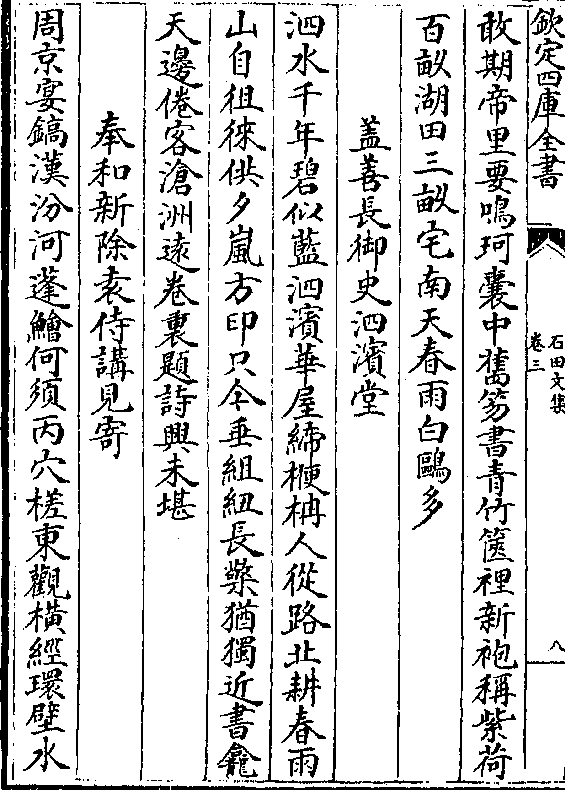 欽定四庫全書
石田文集
卷三
八
敢期帝里要鳴珂囊中舊笏書青竹篋裡新袍稱紫荷
百畝湖田三畝宅南天春雨白鷗多
蓋善長御史泗濱堂
泗水千年碧似藍泗濱華屋締楩柟人從路北耕春雨
山自徂徠供夕嵐方印只今垂組紐長檠猶獨近書龕
天邊倦客滄洲遠卷裏題詩興未堪
奉和新除袁侍講見寄
周京宴鎬漢汾河蓬鱠何須丙穴槎東觀橫經環壁水